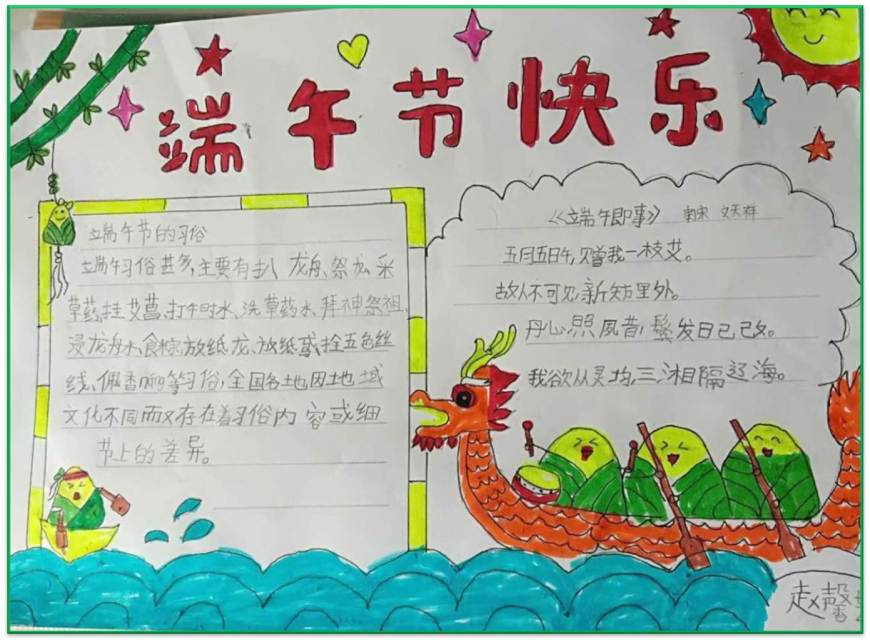 端午节快乐
端午节的习俗
端午习俗甚多,主要有扒龙舟、祭龙、采
草药、挂艾菖、打午时水、洗草药水、拜神祭祖、
浸龙舟水、食粽、放纸龙、放纸鸢、拴五色丝
线、佩香囊等习俗,全国各地因地域
文化不同而又存在着习俗内容或细
节上的差异。
《端午即事》 南宋 文天祥
五月五日午,赠我一枝艾。
故人不可见,新知万里外。
丹心照夙昔,鬓发日已改。
我欲从灵均,三湘隔辽海。
赵馨